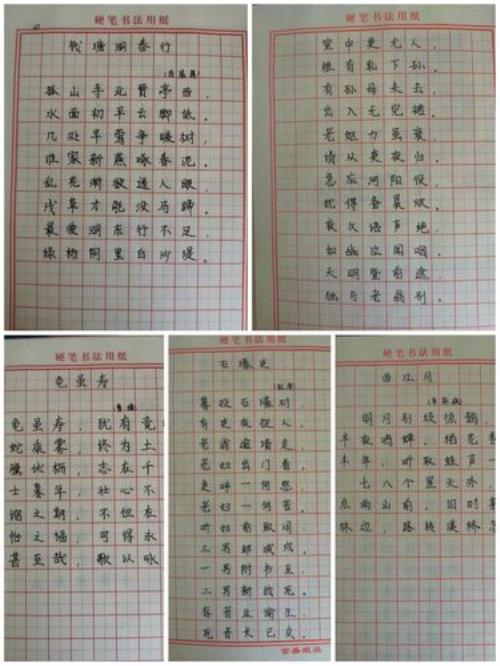 硬笔书法用纸
钱塘湖春行
(白居易)
孤山寺北贾亭西，
水面初平云脚低。
几处早莺争暖树，
谁家新燕啄春泥。
乱花渐欲迷人眼，
浅草才能没马蹄。
最爱湖东行不足，
绿杨阴里白沙堤。
硬笔书法用纸
室中更无人，
惟有乳下孙。
有孙母未去，
出入无完裙。
老妪力虽衰，
请从吏夜归。
急应河阳役，
犹得备晨炊。
夜久语声绝，
如闻泣幽咽。
天明登前途，
独与老翁别。
硬笔书法用纸
龟虽寿
(曹操)
龟虽寿，犹有竟
蛇乘雾，终为土
骥伏枥，志在千
士暮年，壮心不
缩之期，不但在
怡之福，可得永
甚至哉，歌以咏
石壕吏
(杜甫)
暮投石壕村，
有吏夜捉人。
老翁逾墙走，
老妇出门看。
吏呼一何怒，
老妇一何苦。
听妇前致词，
三男邺城戍。
一男附书至，
二男新战死。
存者且偷生，
死者长已矣。
硬笔书法用纸
西江月
(辛弃疾)
明月别枝惊鹊，
半夜鸣蝉。稻花香
丰年，听取蛙声一
七八个星天外
点雨山前。旧时
林边，路转溪桥忽